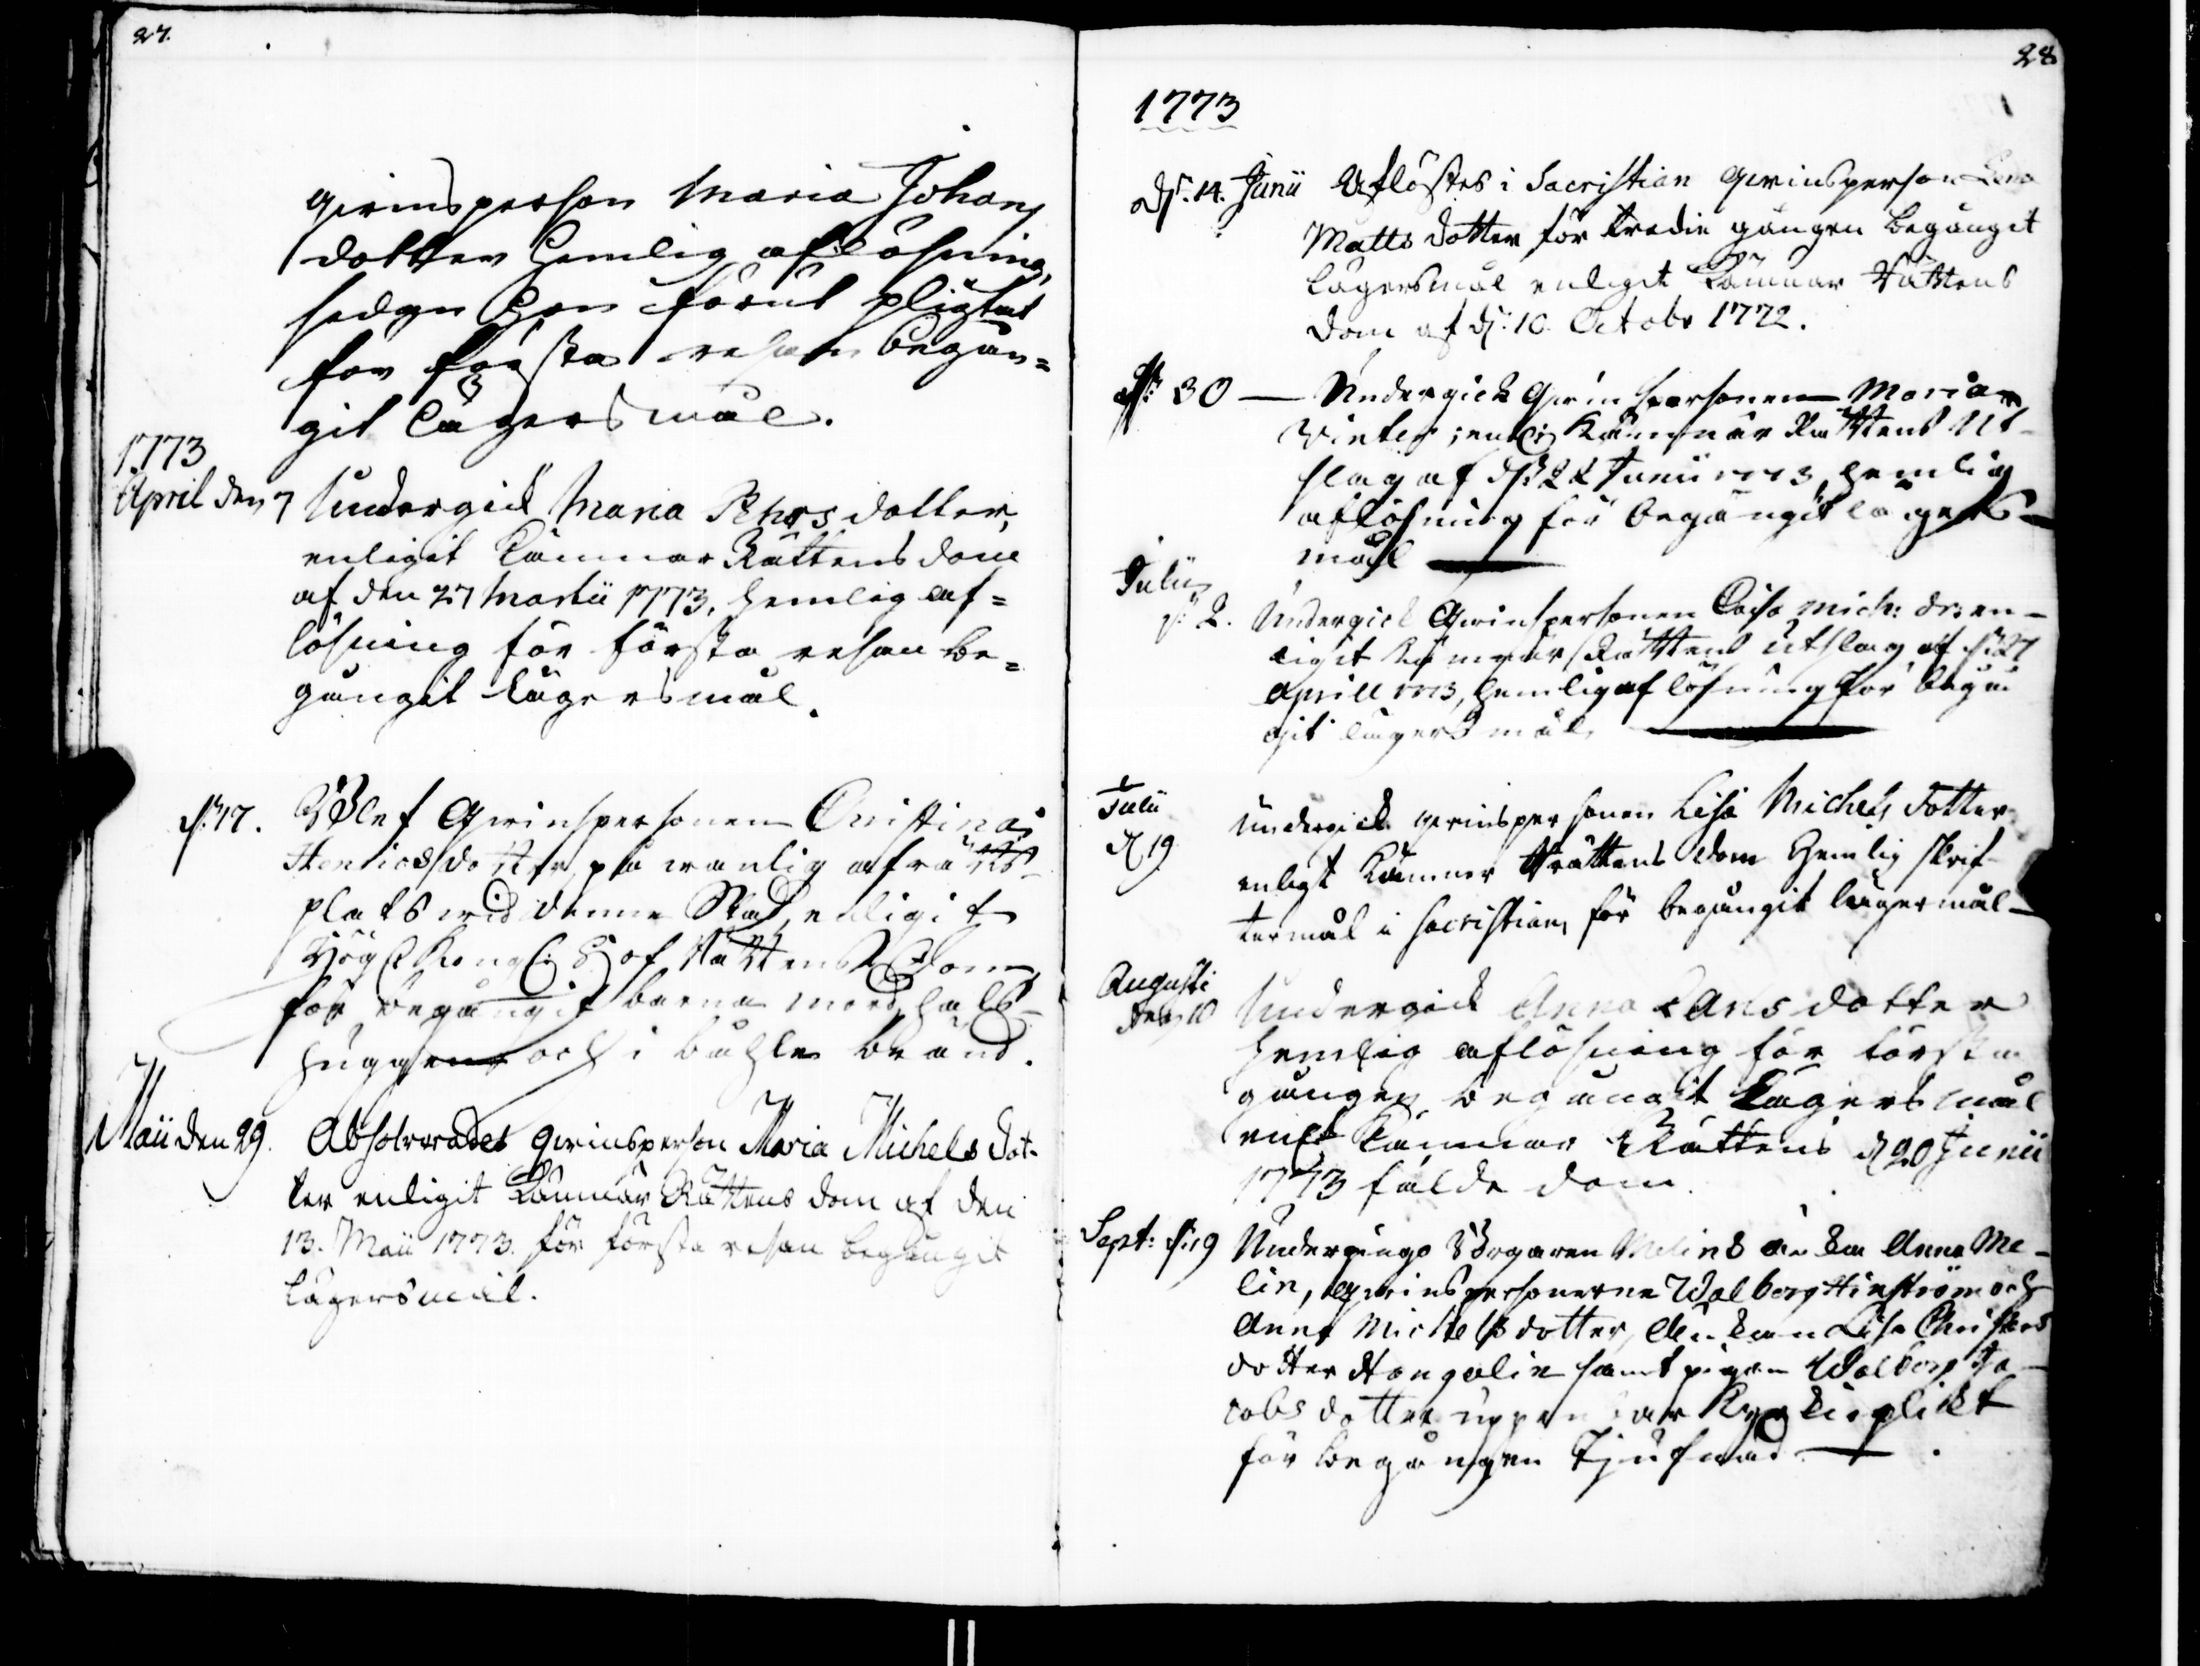 27.
qvinsperson Maria Johans
dotter hemlig aflösning,
sedan hon förut pligtat
för första resan begån=
git lägersmål.
1773
April den 7 Undergick Maria Pehrs dotter,
enligit Kämnärs Rättens dom
af den 27 Martii 1773, hemlig af=
lösning för första resan be=
gångit lägersmål.
d. 17. Blef Qvinspersonen Christina
Henricsdotter, på vanlig afrätts
plats vid denne Stad, enligit
Högl. Kongl: Hof Rättens Dom,
för begångit barna mord, hals-
huggen och i båhle bränd.
Maii den 29. Absolverades qvinsperson Maria Michels dot-
ter enligit Kämnärs Rättens dom af den
13. Maii 1773. för första resan begångit
Lägersmål.
28
1773
d: 14. Junii Aflöstes i Sacristian qvinsperson Lena
Matts dotter för tredie gången begånget
Lägersmål enligit Kämnär Rättens
dom af d: 10. Octobr 1772.
d: 30 — Undergick Qvinspersonen Maria
Winter, enl: Kämnärs Rättens Ut-
slag af d: 22 Junii 1773, hemlig
aflösning för begångit lägers-
mål —
Julii
d: 2. Undergick Qvinspersonen Caisa Mich: dr: en-
ligit Kämnärs Rättens utslag af d: 27
Aprill 1773, hemlig aflösning för begån
git lägersmål.
Julii
d 19 Undergick qvinspersonen Lisa Michels dotter
enligt Kämner Rättens dom hemlig skrif-
termål i sacristian, för begångit lägermål-
Augusti
den 10 Undergick Anna Carls dotter
hemlig aflösning för första
gången begångit Lägersmål
enl Kämnär Rättens d 20 Junii
1773 fälde dom.
Sept: d: 19 Undergingo Borgaren Melins änka Anna Me-
lin, qvinspersonerne Walborg Hinström och
Anna Michelsdotter, Enkan Lisa Christers
dotter Hongelin samt pigan Walborg Ja-
cobs dotter uppenbar Kyrkioplikt
för begången Tjufnad —